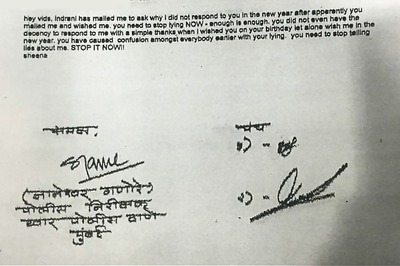 hey vids, Indrani has mailed me to ask why i did not respond to you in the new year after apparently you
mailed me and wished me. you need to stop lying NOW - enough is enough. you did not even have the
decency to respond to me with a simple thanks when I wished you on your birthday let alone wish me in the
new year. you have caused confusion amongst everybody earlier with your lying. you need to stop telling
lies about me. STOP IT NOW!!
sheena
समक्ष. पंच
१) -
२) -
(ज्ञानेश्वर गणोरे)
पोलीस निरीक्षक
खार पोलीस ठाणे
मुंबई